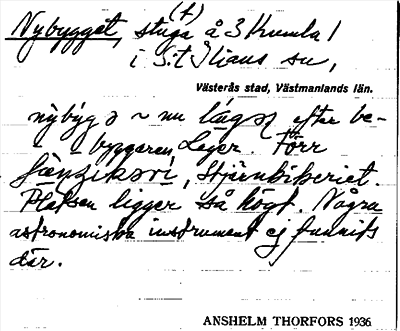 (f)
Nybygget, stuga å 3 Krumla 1
i S:t Ilians sn,
Västerås stad, Västmanlands län.
nỳbýgə ~ nu
efter be-
byggaren Leger. Förr
Stjärnkikeriet.
Platsen ligger så högt. Några
astronomiska instrument ej funnits
där.
ANSHELM THORFORS 1936